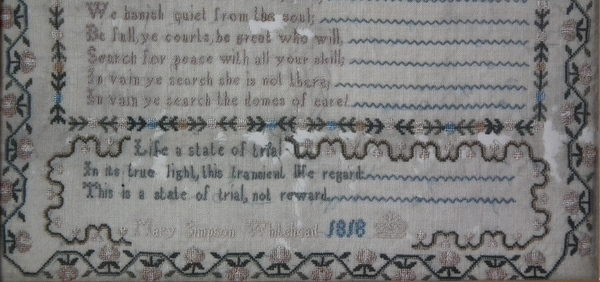 We banish quiet from the soul;
Be full, ye courts, be great who will,
Search for peace with all your skill;
In vain ye search she is not there;
In vain ye search the domes of care!
Life a state of trial
In its true light, this transient life regard:
This is a state of trial, not reward.
Mary Simpson Whitehead 1818